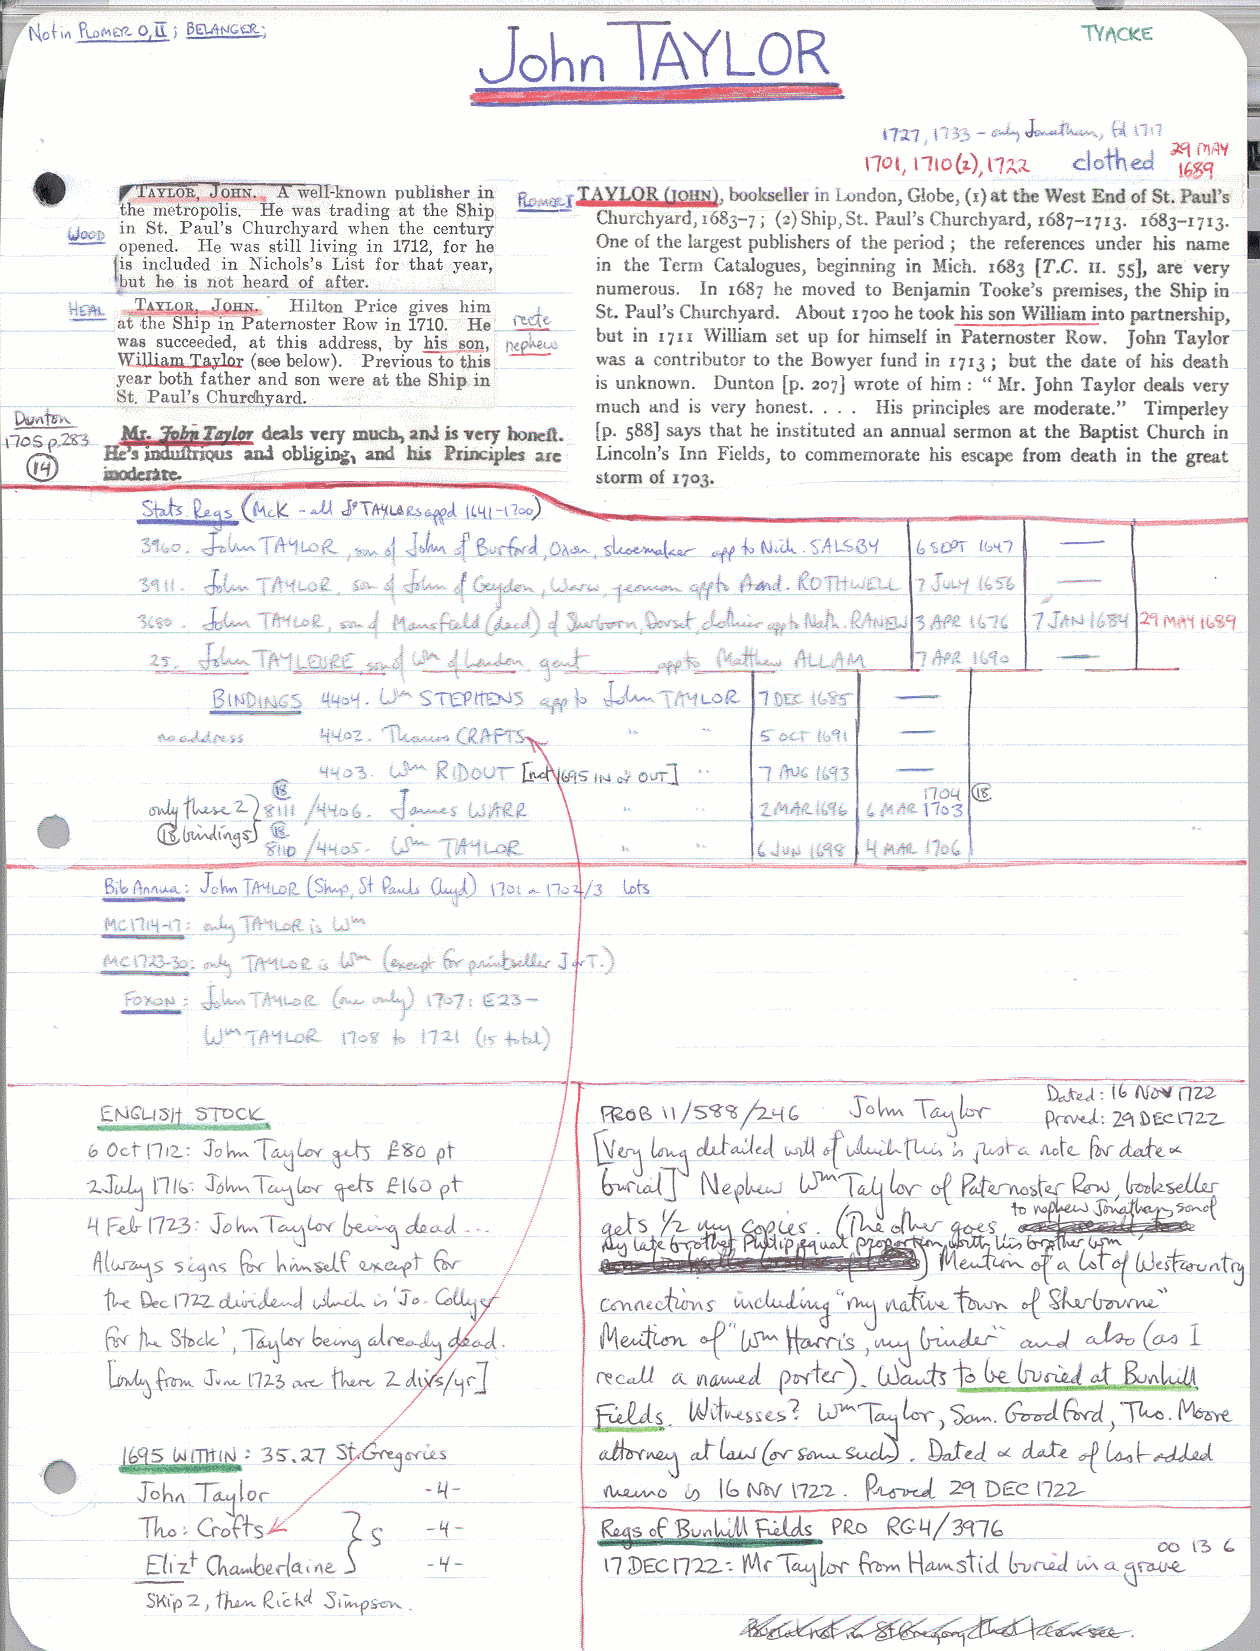 Not in PLOMER O, II; BELANGER;
TYACKE
John TAYLOR
1727, 1733 - only Jonathan, fd 1717
1701, 1710(2), 1722 clothed 29 MAY 1689
WOOD
TAYLOR, JOHN. A well-known publisher in
the metropolis. He was trading at the Ship
in St. Paul's Churchyard when the century
opened. He was still living in 1712, for he
is included in Nichols's List for that year,
but he is not heard of after.
HEAL
TAYLOR, JOHN. Hilton Price gives him
at the Ship in Paternoster Row in 1710. He
was succeeded, at this address, by his son,
William Taylor (see below). Previous to this
year both father and son were at the Ship in
St. Paul's Churchyard.
recte
nephew
Dunton
1705 p.283
14
Mr. John Taylor deals very much, and is very honeſt.
He's induſtrious and obliging, and his Principles are
moderate.
PLOMER I
TAYLOR (JOHN), bookseller in London, Globe, (1) at the West End of St. Paul's
Churchyard, 1683-7; (2) Ship, St. Paul's Churchyard, 1687-1713. 1683-1713.
One of the largest publishers of the period; the references under his name
in the Term Catalogues, beginning in Mich. 1683 [T.C. II. 55], are very
numerous. In 1687 he moved to Benjamin Tooke's premises, the Ship in
St. Paul's Churchyard. About 1700 he took his son William into partnership,
but in 1711 William set up for himself in Paternoster Row. John Taylor
was a contributor to the Bowyer fund in 1713; but the date of his death
is unknown. Dunton [p. 207] wrote of him: " Mr. John Taylor deals very
much and is very honest. . . . His principles are moderate." Timperley
[p. 588] says that he instituted an annual sermon at the Baptist Church in
Lincoln's Inn Fields, to commemorate his escape from death in the great
storm of 1703.
Stats. Regs (McK - all Jo TAYLORs appd 1641-1700)
3960. John TAYLOR, son of John of Burford, Oxon, shoemaker app to Nich. SALSBY 6 SEPT 1647 —
3911. John TAYLOR, son of John of Geydon, Warw, yeoman app to And. ROTHWELL 7 JULY 1656 —
3680. John TAYLOR, son of Mansfield (decd) of Sherborn, Dorset, clothier app to Nath. RANEW 3 APR 1676 7 JAN 1684 29 MAY 1689
25. John TAYLEURE, son of Wm of London, gent app to Matthew ALLAM 7 APR 1690 —
BINDINGS 4404. Wm STEPHENS app to John TAYLOR 7 DEC 1685 —
no address 4402. Thomas CRAFTS " " 5 OCT 1691 —
4403. Wm RIDOUT [not 1695 IN or OUT] " 7 AUG 1693 —
only these 2 18 bindings
18 8111/4406. James WARR " " 2 MAR 1696 6 MAR 1703 1704 18
18 8110/4405. Wm TAYLOR " " 6 JUN 1698 4 MAR 1706
Bib Annua: John TAYLOR (Ship, St Pauls Chyd) 1701 - 1702/3 lots
MC1714-17: only TAYLOR is Wm
MC1723-30: only TAYLOR is Wm (except for printseller J. T.)
FOXON: John TAYLOR (one only) 1707: E23-
Wm TAYLOR 1708 to 1721 (15 total)
ENGLISH STOCK
6 Oct 1712: John Taylor gets £80 pt
2 July 1716: John Taylor gets £160 pt
4 Feb 1723: John Taylor being dead ...
Always signs for himself except for
the Dec 1722 dividend which is 'Jo. Collyer
for the Stock', Taylor being already dead.
[only from June 1723 are there 2 divs/yr]
1695 WITHIN: 35.27 St. Gregories
John Taylor -4-
Tho: Crofts } S -4-
Elizt Chamberlaine -4-
Skip 2, then Richd Simpson.
PROB 11/588/246 John Taylor
Dated: 16 NOV 1722
Proved: 29 DEC 1722
[Very long detailed will of which this is just a note for date &
burial] Nephew Wm Taylor of Paternoster Row, bookseller
gets 1/2 my copies. (The other goes to nephew Jonathan, son of
my late brother Philip equal proportion with his brother Wm
) Mention of a lot of Westcountry
connections including "my native town of Sherbourne"
Mention of "Wm Harris, my binder" and also (as I
recall a named porter). Wants to be buried at Bunhill
Fields. Witnesses? Wm Taylor, Sam. Goodford, Tho. Moore
attorney at law (or some such). Dated & date of last added
memo is 16 NOV 1722. Proved 29 DEC 1722
Regs of Bunhill Fields PRO RG4/3976
00 13 6
17 DEC 1722: Mr Taylor from Hamstid buried in a grave